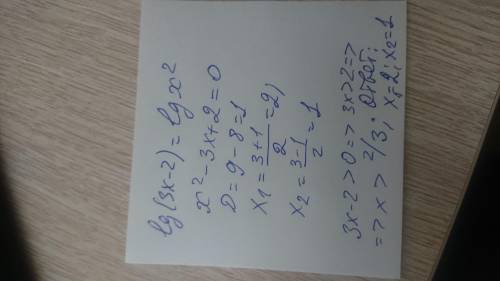 lg(3x-2) = lg x²
x² - 3x + 2 = 0
D = 9 - 8 = 1
x₁ = (3+1)/2 = 2)
x₂ = (3-1)/2 = 1
3x-2 > 0 => 3x > 2 =>
=> x > 2/3. Ответ:
x₁ = 2; x₂ = 1